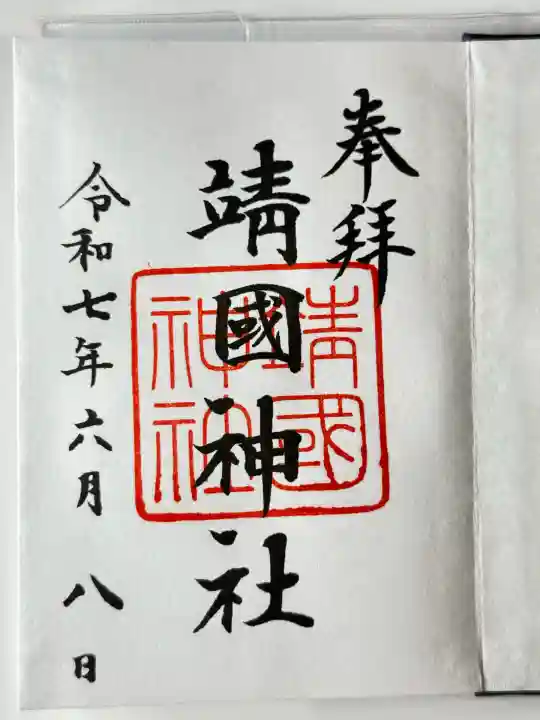 奉拜
靖國神社
靖國
神社
令和七年六月八日